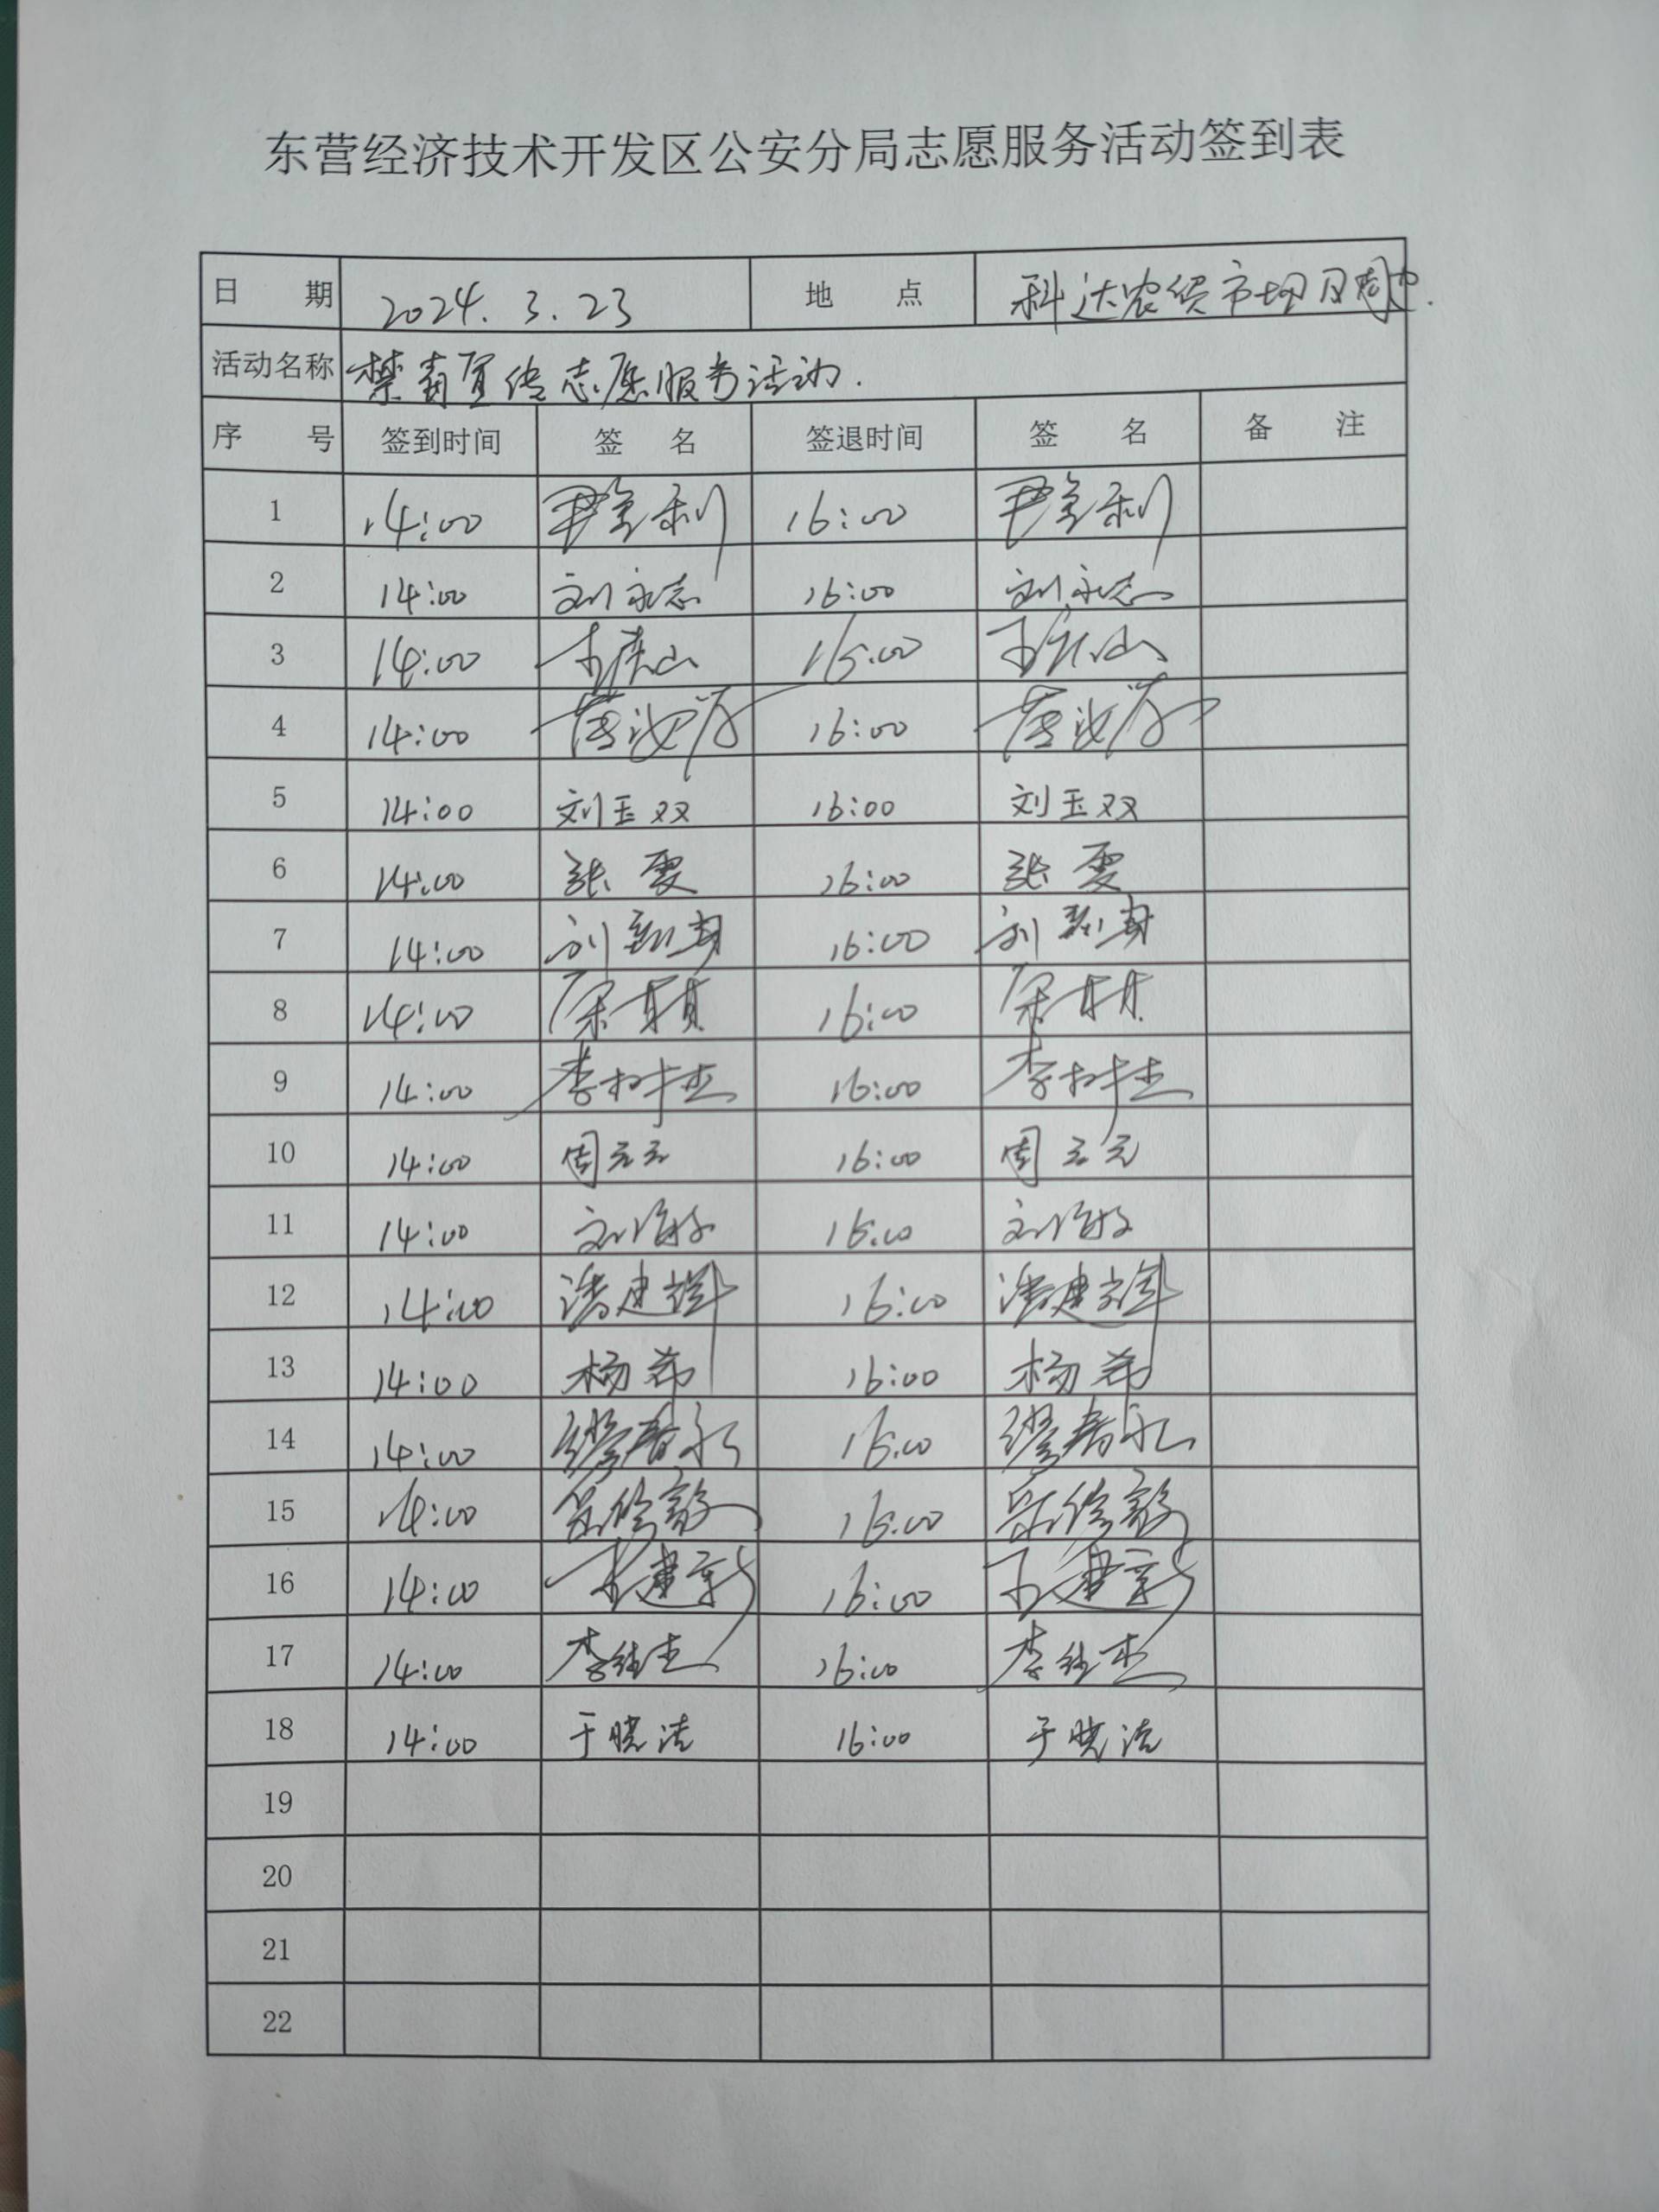 东营经济技术开发区公安分局志愿服务活动签到表
日 期 2024.3.23 地 点 科达农贸市场及周边.
活动名称 禁毒宣传志愿服务活动.
序 号 签到时间 签 名 签退时间 签 名 备 注
1 14:00 尹金利 16:00 尹金利
2 14:00 刘永志 16:00 刘永志
3 14:00 16:00
4 14:00 16:00
5 14:00 刘玉双 16:00 刘玉双
6 14:00 张雯 16:00 张雯
7 14:00 刘 16:00 刘
8 14:00 16:00
9 14:00 李树杰 16:00 李树杰
10 14:00 周元元 16:00 周元元
11 14:00 刘 16:00 刘
12 14:00 16:00
13 14:00 杨希 16:00 杨希
14 14:00 缪春永 16:00 缪春永
15 14:00 16:00
16 14:00 王建新 16:00 王建新
17 14:00 李继杰 16:00 李继杰
18 14:00 于晓洁 16:00 于晓洁
19
20
21
22